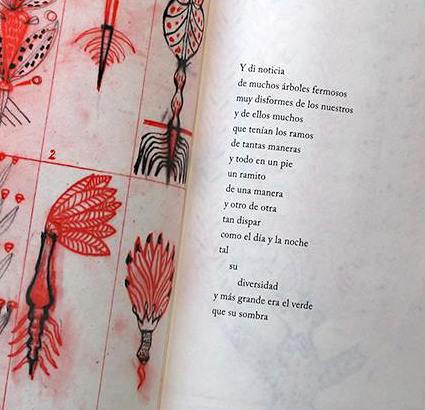 2
Y di noticia
de muchos árboles fermosos
muy disformes de los nuestros
y de ellos muchos
que tenían los ramos
de tantas maneras
y todo en un pie
un ramito
de una manera
y otro de otra
tan dispar
como el día y la noche
tal
su
diversidad
y más grande era el verde
que su sombra